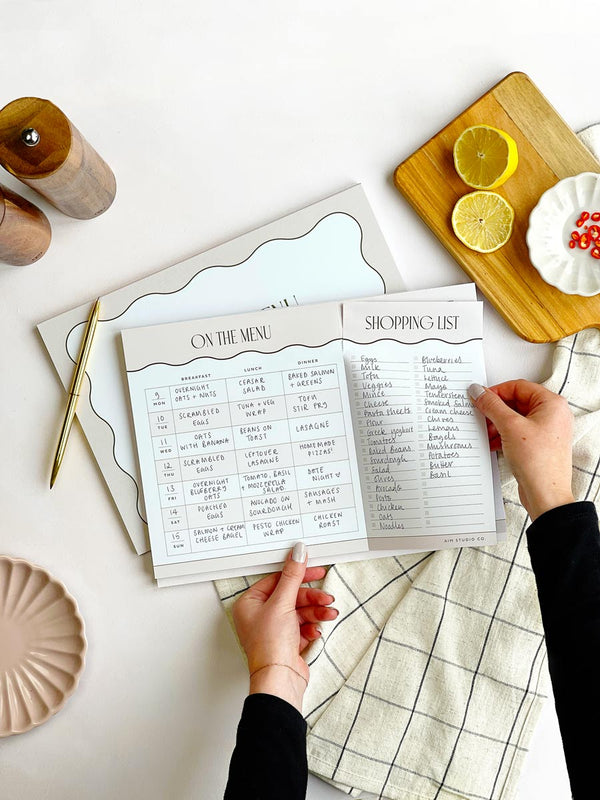 NU
ON THE MENU
BREAKFAST LUNCH DINNER
9 MON
OVERNIGHT OATS + NUTS
CEASAR SALAD
BAKED SALMON + GREENS
10 TUE
SCRAMBLED EGGS
TUNA + VEG WRAP
TOFU STIR FRY
11 WED
OATS WITH BANANA
BEANS ON TOAST
LASAGNE
12 THU
SCRAMBLED EGGS
LEFTOVER LASAGNE
HOMEMADE PIZZAS!
13 FRI
OVERNIGHT BLUEBERRY OATS
TOMATO, BASIL + MOZZERELLA SALAD
DATE NIGHT
14 SAT
POACHED EGGS
AVOCADO ON SOURDOUGH
SAUSAGES + MASH
15 SUN
SALMON + CREAM CHEESE BAGEL
PESTO CHICKEN WRAP
CHICKEN ROAST
SHOPPING LIST
Eggs
Milk
Tofu
Veggies
Mince
Cheese
Pasta sheets
Flour
Greek yoghurt
Tomatoes
Baked Beans
Sourdough
Salad
Olives
Avocado
Oats
Chicken
Oats
Noodles
Blueberries
Tuna
Lettuce
Mayo
Tenderstem
Smoked Salmon
Cream cheese
Chives
Lemons
Bagels
Mushrooms
Potatoes
Butter
Basil
AIM STUDIO CO.